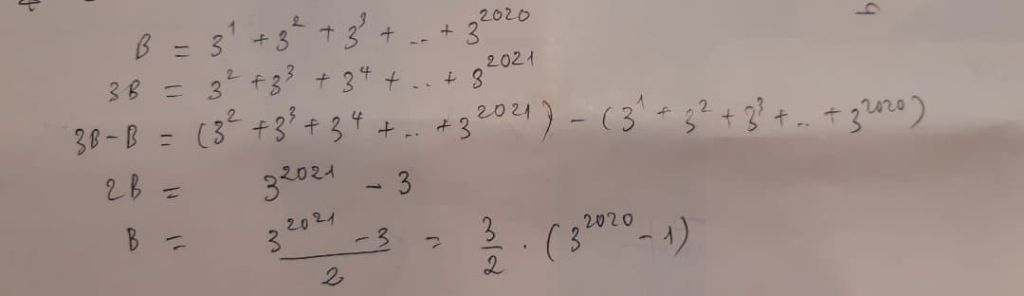 B = 3¹ + 3² + 3³ + .. + 3²⁰²⁰
3B = 3² + 3³ + 3⁴ + .. + 3²⁰²¹
3B-B = (3² + 3³ + 3⁴ + .. + 3²⁰²¹) - (3¹ + 3² + 3³ + .. + 3²⁰²⁰)
2B = 3²⁰²¹ - 3
B = (3²⁰²¹ - 3)/2 = 3/2 . (3²⁰²⁰ - 1)